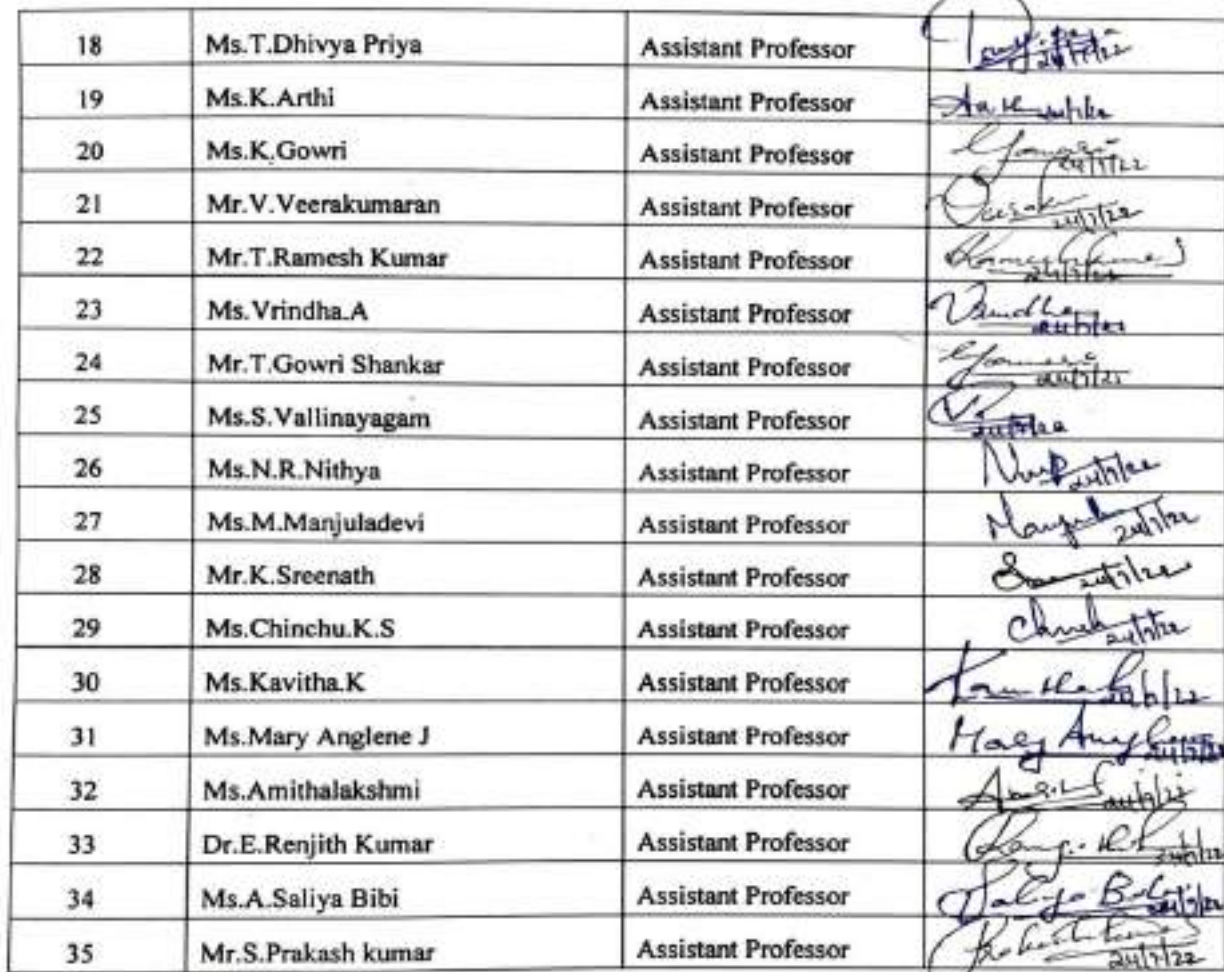 18 Ms.T.Dhivya Priya Assistant Professor
19 Ms.K.Arthi Assistant Professor
20 Ms.K.Gowri Assistant Professor
21 Mr.V.Veerakumaran Assistant Professor 24/7/22
22 Mr.T.Ramesh Kumar Assistant Professor 24/7/22
23 Ms.Vrindha.A Assistant Professor
24 Mr.T.Gowri Shankar Assistant Professor
25 Ms.S.Vallinayagam Assistant Professor
26 Ms.N.R.Nithya Assistant Professor 24/7/22
27 Ms.M.Manjuladevi Assistant Professor 24/7/22
28 Mr.K.Sreenath Assistant Professor 24/7/22
29 Ms.Chinchu.K.S Assistant Professor 24/7/22
30 Ms.Kavitha.K Assistant Professor 24/7/22
31 Ms.Mary Anglene J Assistant Professor
32 Ms.Amithalakshmi Assistant Professor 24/7/22
33 Dr.E.Renjith Kumar Assistant Professor
34 Ms.A.Saliya Bibi Assistant Professor
35 Mr.S.Prakash kumar Assistant Professor 24/7/22